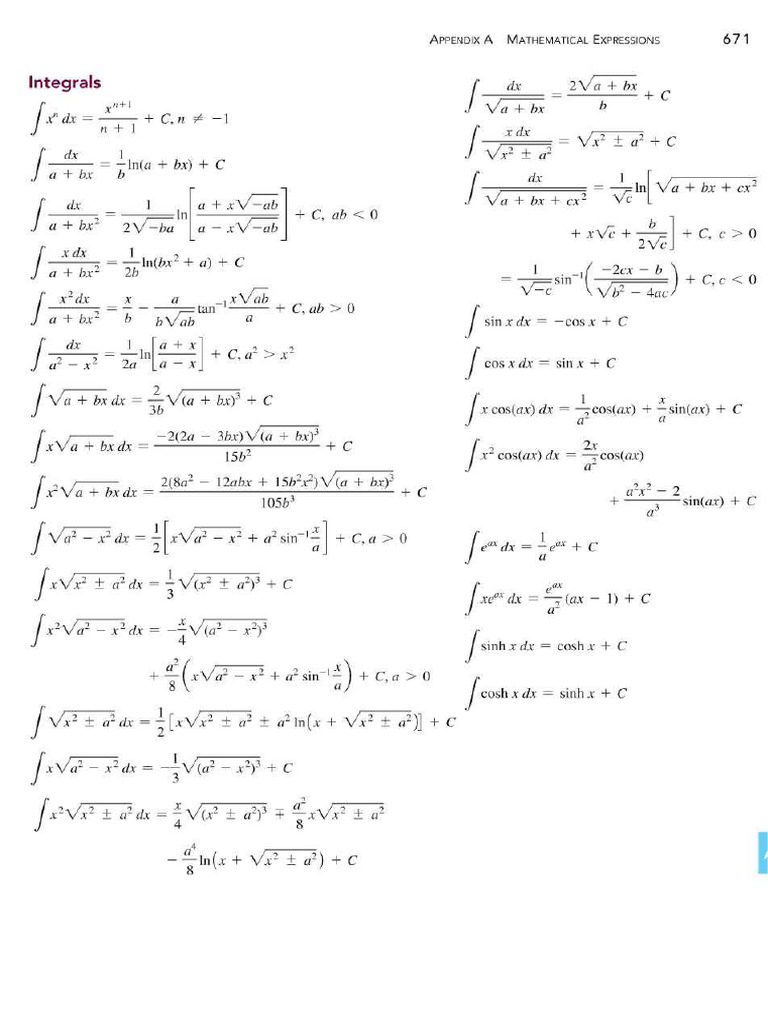 APPENDIX A MATHEMATICAL EXPRESSIONS 671
Integrals
∫ xⁿ dx = xⁿ⁺¹/(n + 1) + C, n ≠ −1
∫ dx/(a + bx) = (1/b) ln(a + bx) + C
∫ dx/(a + bx²) = (1/(2√(−ba))) ln[(a + x√(−ab))/(a − x√(−ab))] + C, ab < 0
∫ x dx/(a + bx²) = (1/(2b)) ln(bx² + a) + C
∫ x² dx/(a + bx²) = x/b − (a/(b√(ab))) tan⁻¹ (x√(ab)/a) + C, ab > 0
∫ dx/(a² − x²) = (1/(2a)) ln[(a + x)/(a − x)] + C, a² > x²
∫ √(a + bx) dx = (2/(3b)) √((a + bx)³) + C
∫ x√(a + bx) dx = −2(2a − 3bx)√((a + bx)³)/(15b²) + C
∫ x²√(a + bx) dx = 2(8a² − 12abx + 15b²x²)√((a + bx)³)/(105b³) + C
∫ √(a² − x²) dx = (1/2)[x√(a² − x²) + a² sin⁻¹ (x/a)] + C, a > 0
∫ x√(x² ± a²) dx = (1/3)√((x² ± a²)³) + C
∫ x²√(a² − x²) dx = −(x/4)√((a² − x²)³)
+ (a²/8)(x√(a² − x²) + a² sin⁻¹ (x/a)) + C, a > 0
∫ √(x² ± a²) dx = (1/2)[x√(x² ± a²) ± a² ln(x + √(x² ± a²))] + C
∫ x√(a² − x²) dx = −(1/3)√((a² − x²)³) + C
∫ x²√(x² ± a²) dx = (x/4)√((x² ± a²)³) ∓ (a²/8) x√(x² ± a²)
− (a⁴/8) ln(x + √(x² ± a²)) + C
∫ dx/√(a + bx) = 2√(a + bx)/b + C
∫ x dx/√(x² ± a²) = √(x² ± a²) + C
∫ dx/√(a + bx + cx²) = (1/√c) ln[√(a + bx + cx²)
+ x√c + b/(2√c)] + C, c > 0
= (1/√(−c)) sin⁻¹((−2cx − b)/√(b² − 4ac)) + C, c < 0
∫ sin x dx = −cos x + C
∫ cos x dx = sin x + C
∫ x cos(ax) dx = (1/a²) cos(ax) + (x/a) sin(ax) + C
∫ x² cos(ax) dx = (2x/a²) cos(ax)
+ ((a²x² − 2)/a³) sin(ax) + C
∫ eᵃˣ dx = (1/a) eᵃˣ + C
∫ xeᵃˣ dx = (eᵃˣ/a²)(ax − 1) + C
∫ sinh x dx = cosh x + C
∫ cosh x dx = sinh x + C